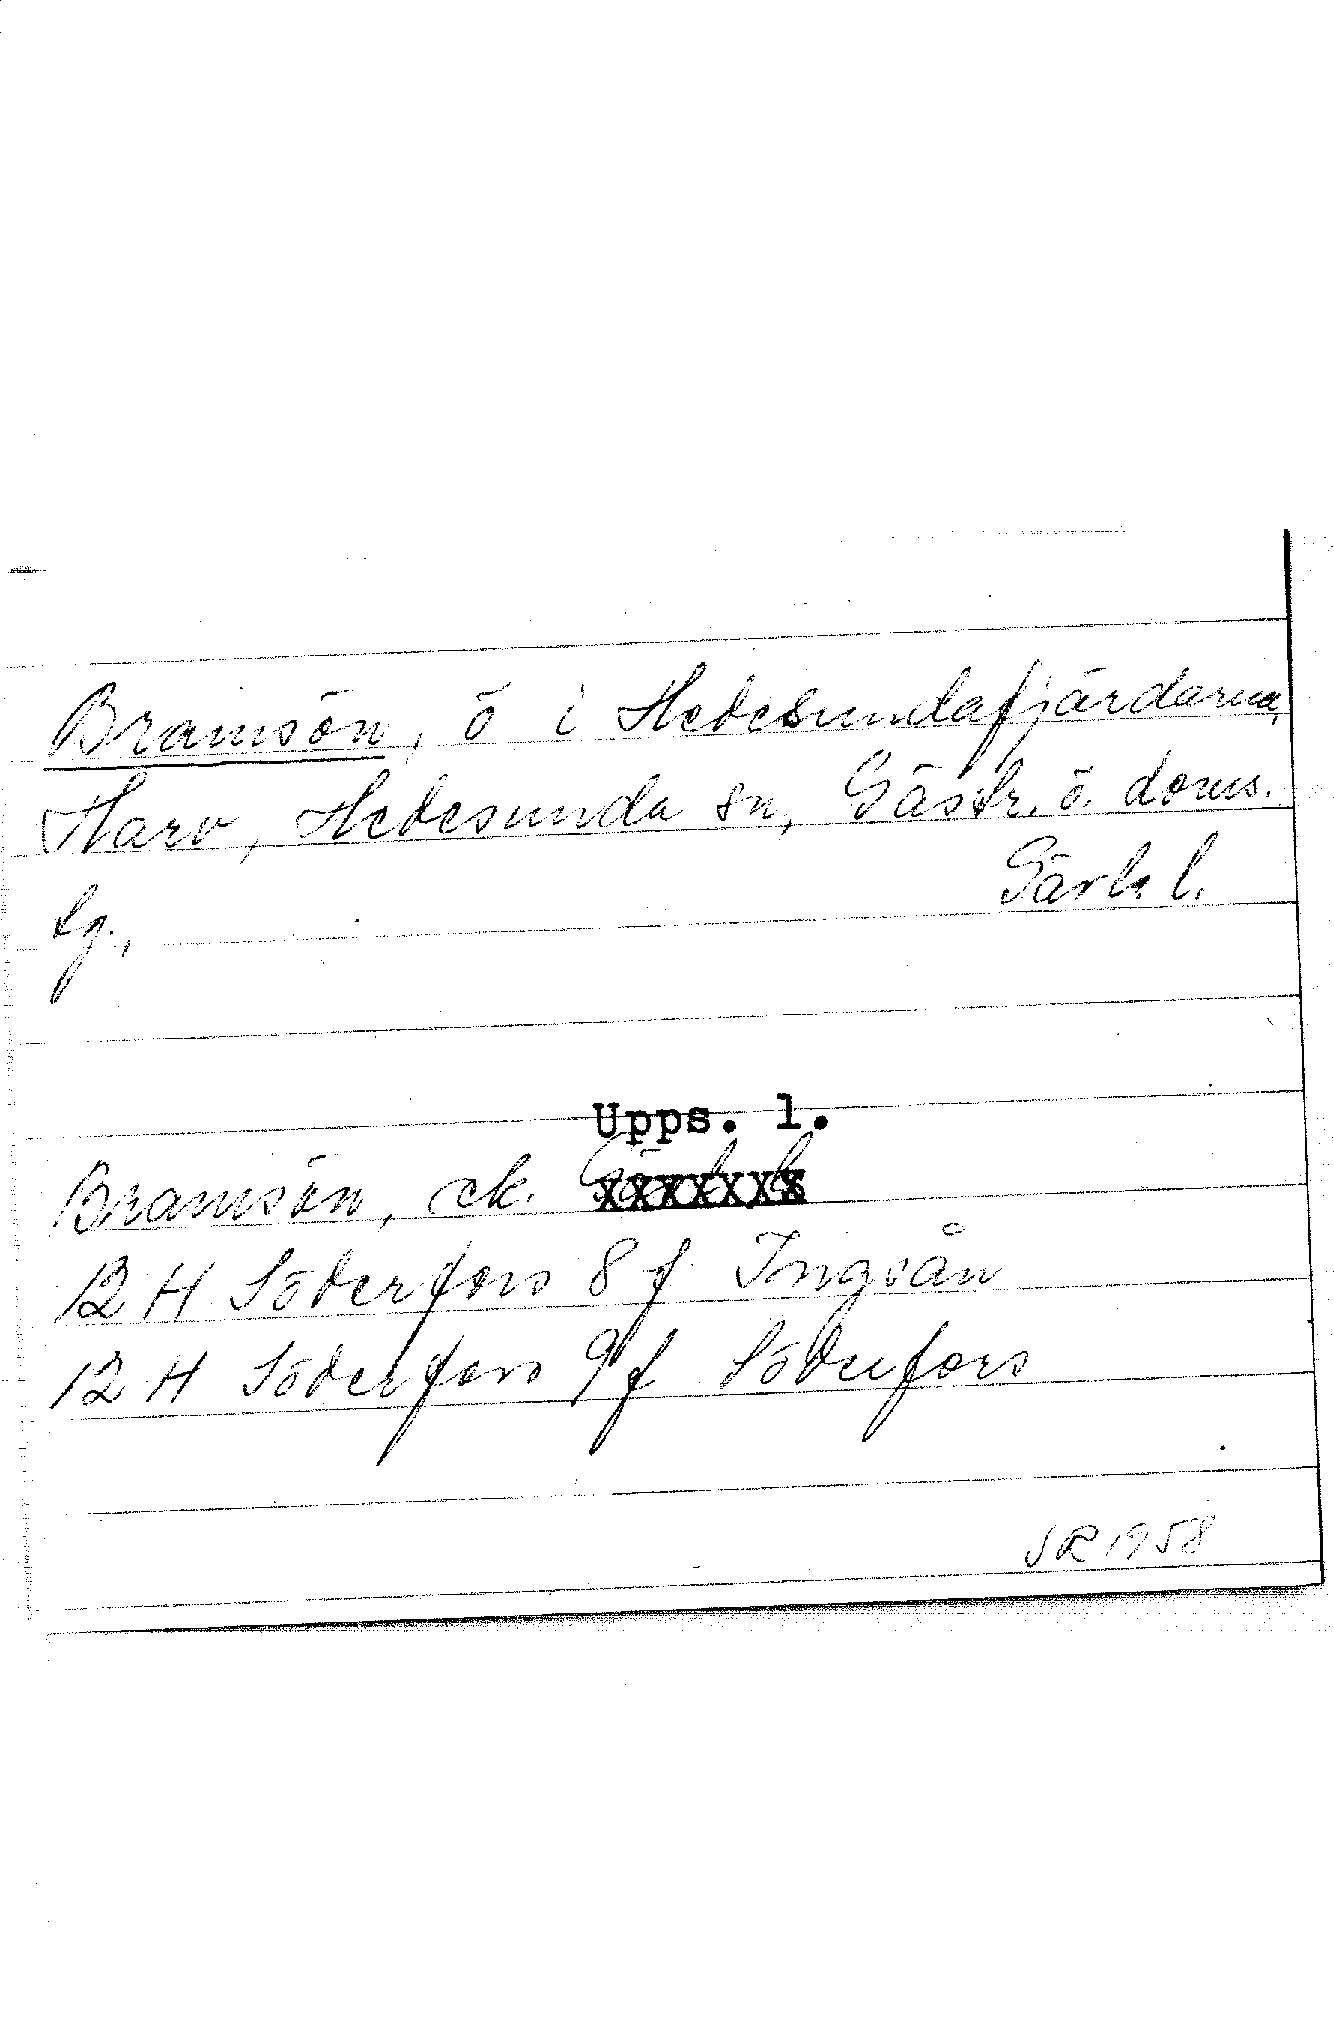 Bramsön, ö i Hedesundafjärdarna,
Harv, Hedesunda sn, Gästr. ö. doms.
tg.,
Gävle l.
Upps. l.
Bramsön, ek.
12 H Söderfors 8 f Ingsån
12 H Söderfors 9 f Söderfors
SR 1958